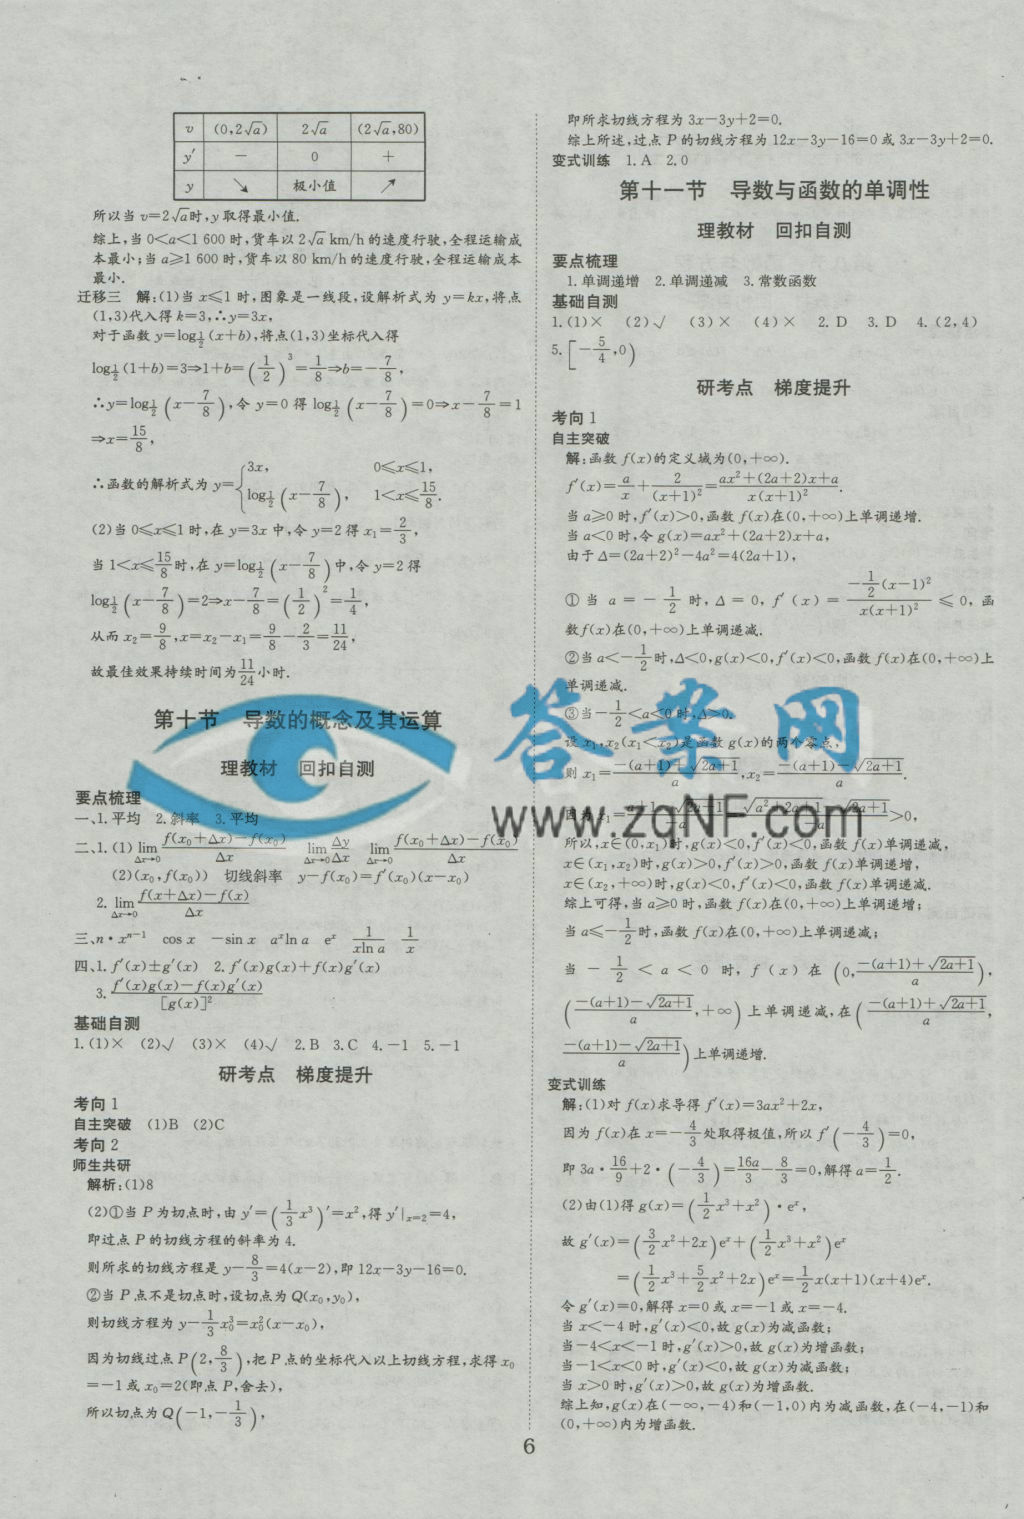 v (0,2√a) 2√a (2√a,80)
y′ − 0 +
y ↘ 极小值 ↗
所以当 v=2√a时,y取得最小值.
综上,当 0<a<1 600 时,货车以 2√a km/h 的速度行驶,全程运输成
本最小;当 a≥1 600 时,货车以 80 km/h 的速度行驶,全程运输成本
最小.
迁移三 解:(1)当 x≤1 时,图象是一线段,设解析式为 y=kx,将点
(1,3)代入得 k=3,∴y=3x,
对于函数 y=log_{1/2}(x+b),将点(1,3)坐标代入得
log_{1/2}(1+b)=3⇒1+b=(1/2)^3=1/8⇒b=−7/8,
∴y=log_{1/2}(x−7/8),令 y=0 得 log_{1/2}(x−7/8)=0⇒x−7/8=1
⇒x=15/8,
∴函数的解析式为 y={3x, 0≤x≤1,
log_{1/2}(x−7/8), 1<x≤15/8.
(2)当 0≤x≤1 时,在 y=3x 中,令 y=2 得 x₁=2/3,
当 1<x≤15/8时,在 y=log_{1/2}(x−7/8)中,令 y=2 得
log_{1/2}(x−7/8)=2⇒x−7/8=(1/2)^2=1/4,
从而 x₂=9/8,x=x₂−x₁=9/8−2/3=11/24,
故最佳效果持续时间为11/24小时.
第十节 导数的概念及其运算
理教材 回扣自测
要点梳理
一、1.平均 2.斜率 3.平均
二、1.(1) lim_{Δx→0} (f(x₀+Δx)−f(x₀))/Δx lim_{Δx→0} Δy/Δx lim_{Δx→0} (f(x₀+Δx)−f(x₀))/Δx
(2)(x₀,f(x₀)) 切线斜率 y−f(x₀)=f′(x₀)(x−x₀)
2. lim_{Δx→0} (f(x+Δx)−f(x))/Δx
三、n·x^{n−1} cos x −sin x a^x ln a e^x 1/(xln a) 1/x
四、1. f′(x)±g′(x) 2. f′(x)g(x)+f(x)g′(x)
3. (f′(x)g(x)−f(x)g′(x))/[g(x)]²
基础自测
1.(1)× (2)√ (3)× (4)√ 2.B 3.C 4.−1 5.−1
研考点 梯度提升
考向 1
自主突破 (1)B (2)C
考向 2
师生共研
解析:(1)8
(2)①当 P 为切点时,由 y′=(1/3 x³)′=x²,得 y′|_{x=2}=4,
即过点 P 的切线方程的斜率为 4.
则所求的切线方程是 y−8/3=4(x−2),即 12x−3y−16=0.
②当 P 点不是切点时,设切点为 Q(x₀,y₀),
则切线方程为 y−1/3 x₀³=x₀²(x−x₀),
因为切线过点 P(2,8/3),把 P 点的坐标代入以上切线方程,求得 x₀
=−1 或 x₀=2(即点 P,舍去),
所以切点为 Q(−1,−1/3),
即所求切线方程为 3x−3y+2=0.
综上所述,过点 P 的切线方程为 12x−3y−16=0 或 3x−3y+2=0.
变式训练 1.A 2.0
第十一节 导数与函数的单调性
理教材 回扣自测
要点梳理
1.单调递增 2.单调递减 3.常数函数
基础自测
1.(1)× (2)√ (3)× (4)× 2.D 3.D 4.(2,4)
5.[−5/4,0)
研考点 梯度提升
考向 1
自主突破
解:函数 f(x)的定义域为(0,+∞).
f′(x)=a/x+2/(x+1)²=(ax²+(2a+2)x+a)/(x(x+1)²).
当 a≥0 时,f′(x)>0,函数 f(x)在(0,+∞)上单调递增.
当 a<0 时,令 g(x)=ax²+(2a+2)x+a,
由于 Δ=(2a+2)²−4a²=4(2a+1),
①当 a=−1/2 时,Δ=0,f′(x)=(−1/2(x−1)²)/(x(x+1)²)≤0,函
数f(x)在(0,+∞)上单调递减.
②当 a<−1/2时,Δ<0,g(x)<0,f′(x)<0,函数 f(x)在(0,+∞)上
单调递减.
③当−1/2<a<0时,Δ>0.
设 x₁,x₂(x₁<x₂)是函数 g(x)的两个零点,
则 x₁=(−(a+1)+√(2a+1))/a,x₂=(−(a+1)−√(2a+1))/a.
因为 x₁=(a+1−√(2a+1))/(−a)=(√(a²+2a+1)−√(2a+1))/(−a)>0,
所以,x∈(0,x₁)时,g(x)<0,f′(x)<0,函数 f(x)单调递减,
x∈(x₁,x₂)时,g(x)>0,f′(x)>0,函数 f(x)单调递增,
x∈(x₂,+∞)时,g(x)<0,f′(x)<0,函数 f(x)单调递减.
综上可得,当 a≥0 时,函数 f(x)在(0,+∞)上单调递增;
当 a≤−1/2时,函数 f(x)在(0,+∞)上单调递减;
当 −1/2<a<0 时,f(x)在(0,(−(a+1)+√(2a+1))/a),
((−(a+1)−√(2a+1))/a,+∞)上单调递减,在((−(a+1)+√(2a+1))/a,
(−(a+1)−√(2a+1))/a)上单调递增.
变式训练
解:(1)对 f(x)求导得 f′(x)=3ax²+2x,
因为 f(x)在 x=−4/3处取得极值,所以 f′(−4/3)=0,
即 3a·16/9+2·(−4/3)=16a/3−8/3=0,解得 a=1/2.
(2)由(1)得 g(x)=(1/2 x³+x²)·e^x,
故 g′(x)=(3/2 x²+2x)e^x+(1/2 x³+x²)e^x
=(1/2 x³+5/2 x²+2x)e^x=1/2 x(x+1)(x+4)e^x.
令 g′(x)=0,解得 x=0 或 x=−1 或 x=−4.
当 x<−4 时,g′(x)<0,故 g(x)为减函数;
当−4<x<−1 时,g′(x)>0,故 g(x)为增函数;
当−1<x<0 时,g′(x)<0,故 g(x)为减函数;
当 x>0 时,g′(x)>0,故 g(x)为增函数.
综上知,g(x)在(−∞,−4)和(−1,0)内为减函数,在(−4,−1)和
(0,+∞)内为增函数.
6
答案网
www.zqNF.com